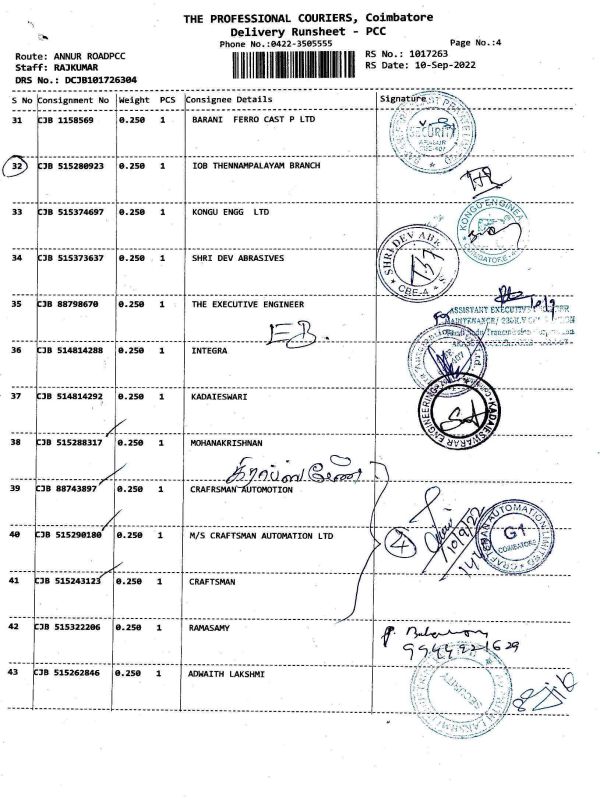 THE PROFESSIONAL COURIERS, Coimbatore
Delivery Runsheet - PCC
Phone No.:0422-3505555
Page No.:4
Route: ANNUR ROADPCC
Staff: RAJKUMAR
DRS No.: DCJB101726304
RS No.: 1017263
RS Date: 10-Sep-2022
S No Consignment No Weight PCS Consignee Details Signature
31 CJB 1158569 0.250 1 BARANI FERRO CAST P LTD
SECURITY
32 CJB 515280923 0.250 1 IOB THENNAMPALAYAM BRANCH
33 CJB 515374697 0.250 1 KONGU ENGG LTD
KONGU ENGINEA
34 CJB 515373637 0.250 1 SHRI DEV ABRASIVES
SHRI DEV ABR
CBE-4
35 CJB 88798670 0.250 1 THE EXECUTIVE ENGINEER
10/9
ASSISTANT EXECUTIVE
E.B.
36 CJB 514814288 0.250 1 INTEGRA
37 CJB 514814292 0.250 1 KADAIESWARI
KADAIESWARAR ENGINEERING
38 CJB 515288317 0.250 1 MOHANAKRISHNAN
39 CJB 88743897 0.250 1 CRAFRSMAN AUTOMOTION
40 CJB 515290180 0.250 1 M/S CRAFTSMAN AUTOMATION LTD
4
10/9/22
CRAFTSMAN AUTOMATION LIMITED
G1
COIMBATORE
41 CJB 515243123 0.250 1 CRAFTSMAN
42 CJB 515322206 0.250 1 RAMASAMY
9944221629
43 CJB 515262846 0.250 1 ADWAITH LAKSHMI
SECURITY